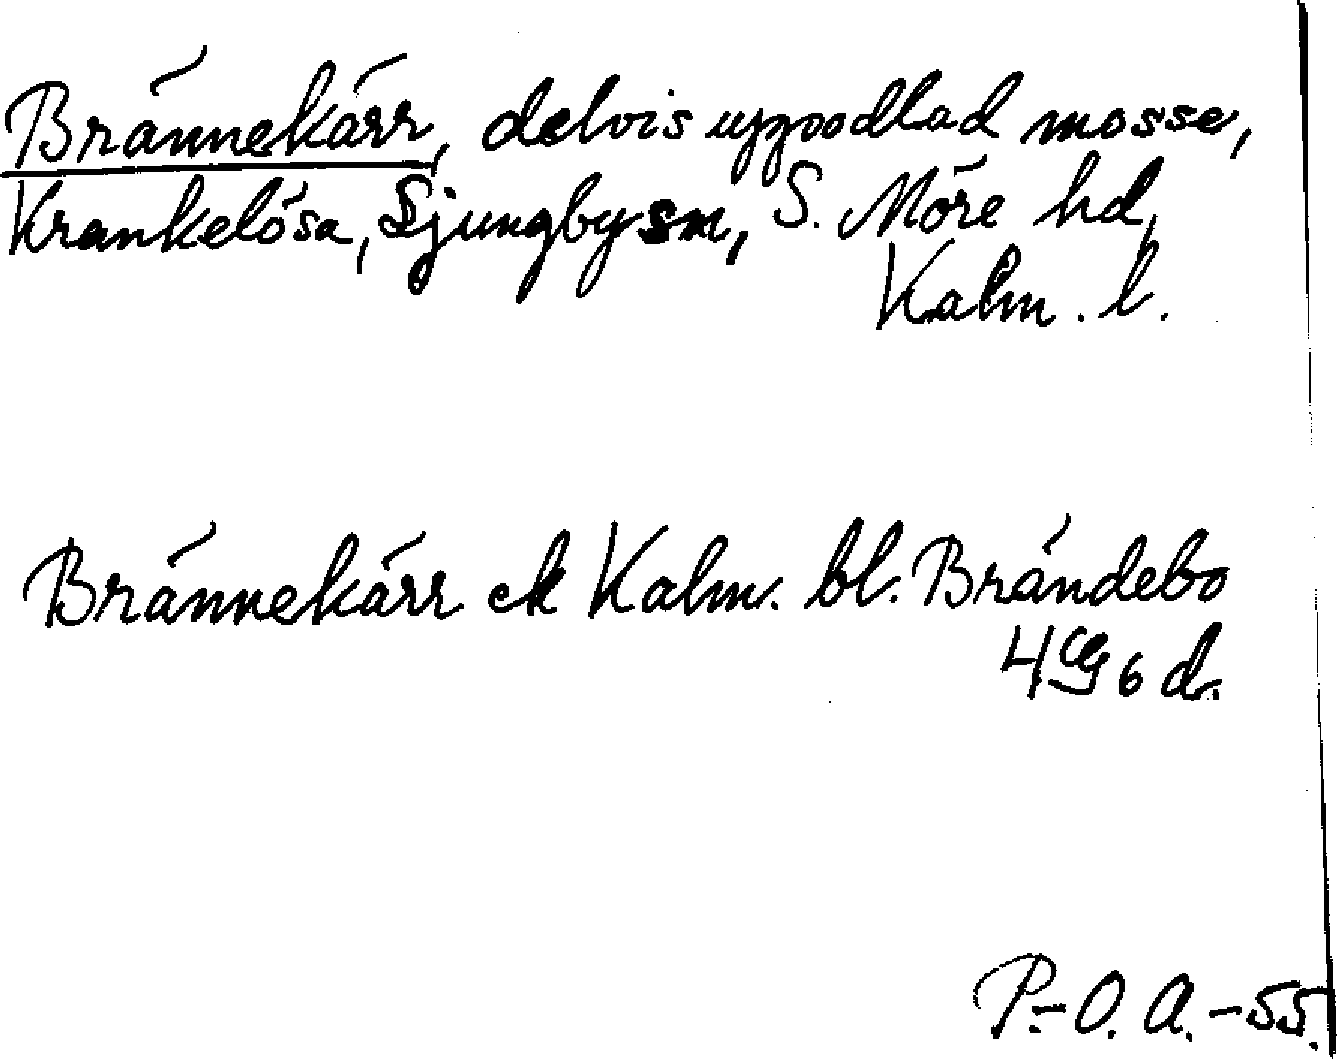 Brännekärr, delvis uppodlad mosse,
Krankelösa, Ljungby sn, S. Möre hd,
Kalm. l.
Brännekärr ek Kalm. bl. Brändebo
4G6d.
P.-O. A. -55.